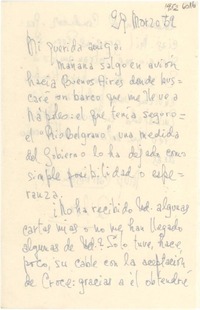 29 Marzo 52
Mi querida amiga:
mañana salgo en avión
hacia Buenos Aires donde bus-
caré un barco que me lleve a
Nápoles: el que tenía seguro
el "Río Belgrano", una medida
del Gobierno lo ha dejado con
simple posibilidad o espe-
ranza.
¿No ha recibido Ud. algunas
cartas mías o no me han llegado
algunas de Ud.? Solo tuve, hace
poco, su cable con la aceptación
de Croce: gracias a él obtendré